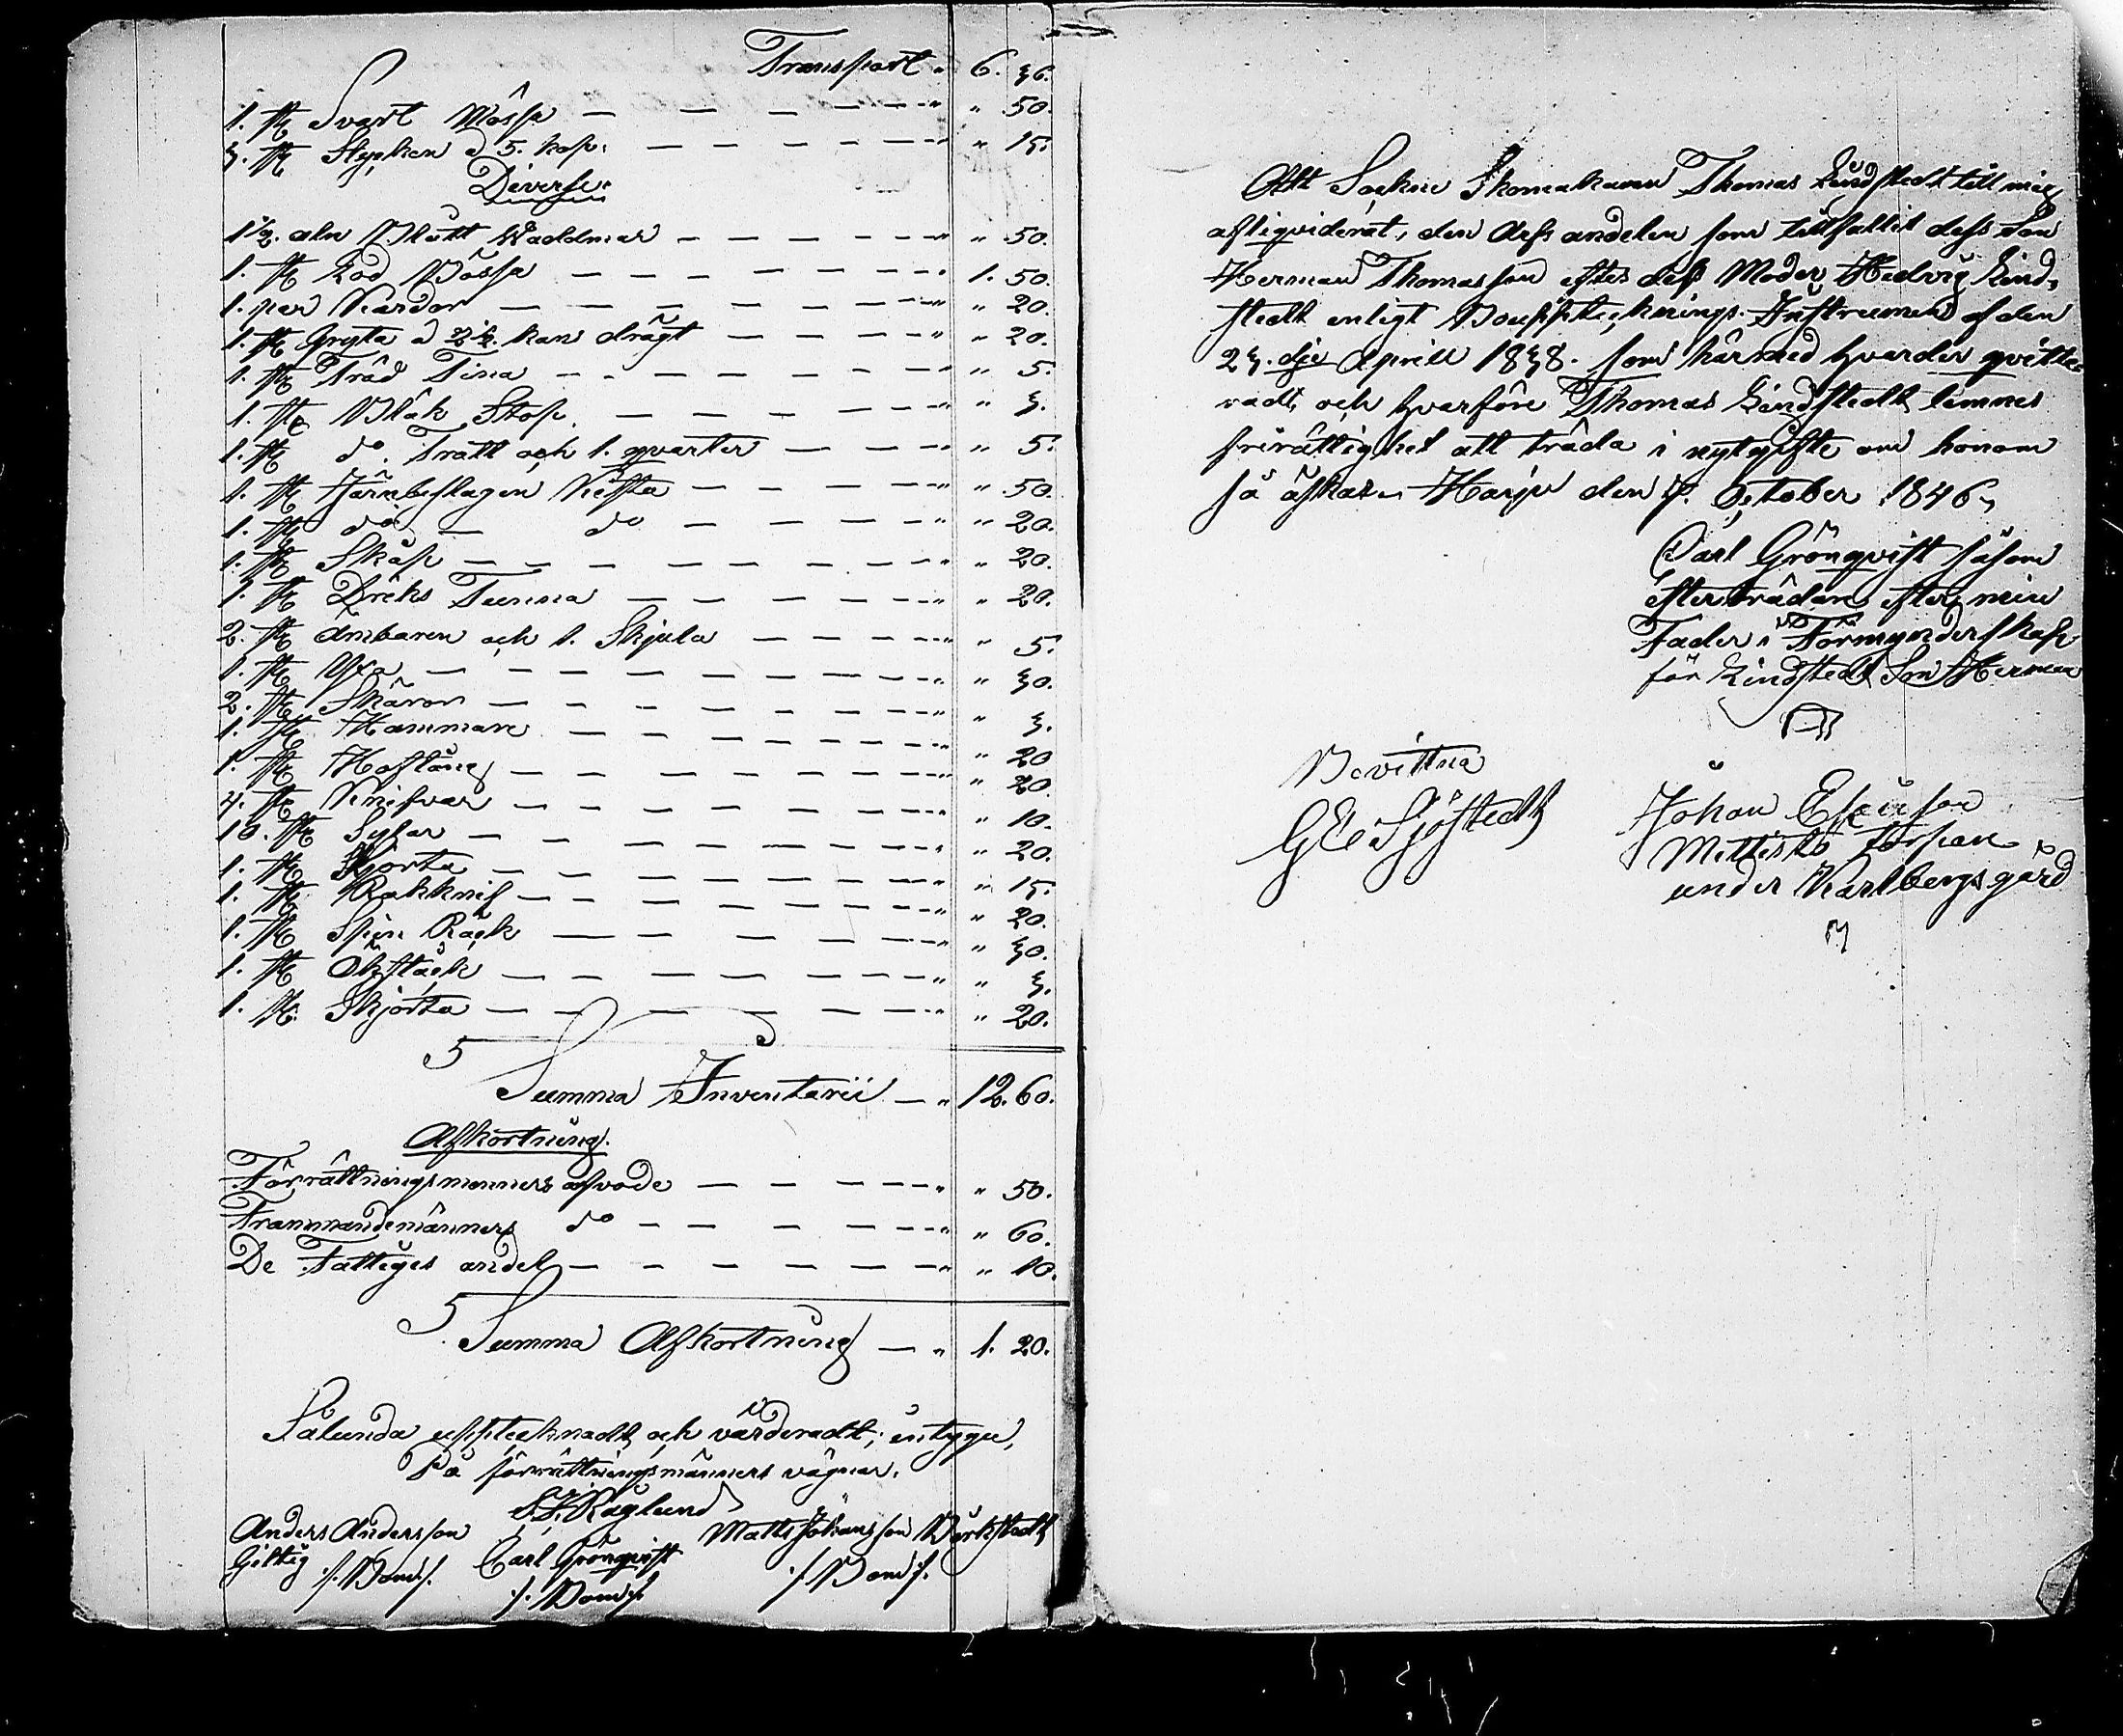 Transport „ 6. 36.
1. st: Svart Mössa — — — — „ „ 50.
3. st: Stycken a 5. kop: — — — — „ „ 15.
Diverse:
1½. aln Blått Wadmar — — — — „ „ 50.
1. st: Lod Bössa — — — — „ 1. 50.
1. par Kardor — — — — „ „ 20.
1. st: Gryta a 2½. kan drägt — — — „ „ 20.
1. st: Träd Tina — — — — „ „ 5.
1. st: Bläk Stop. — — — — „ „ 3.
1. st: do. Tratt och 1. qvarter — — — „ „ 5.
1. st: Järnbeslagen Kista — — — „ „ 50.
1. st: do — do — — — „ „ 20.
1. st: Skåp — — — — „ „ 20.
1. st: Dricks Tunna — — — — „ „ 20.
2. st: Ämbaren och 1. Skjula — — — „ „ 5.
1. st: Yxa — — — — „ „ 30.
2. st: Skäror — — — — „ „ 3.
1. st: Hammare — — — — „ „ 20
1. st: Hoftång — — — — „ „ 20.
4. st: Knifvar — — — — „ „ 10.
10. st: Sylar — — — — „ „ 20.
1. st: Skjorta — — — — „ „ 15.
1. st: Rakknif — — — — „ „ 20.
1. st: Spin Råck — — — — „ „ 30.
1. st: — — — — „ „ 3.
1. st: Skjorta — — — — „ „ 20.
Summa Inventarii — „ 12. 60.
Afkortning.
Förrättningsmanners arfvode — — — „ „ 50.
Frammandemänners do — — — „ „ 60.
De Fattiges andel — — — — „ „ 10.
Summa Afkortning — „ 1. 20.
Sålunda upptecknadt och värderadt; intyga,
På förrättningsmänners vägnar.
Roglund
Anders Andersson Matts Johansson Börkstedt
Giltig /: Bond :/ Carl Grönqvist /: Bond :/
/: Bond :/
Att Sockne Skomakaren Thomas Lindstedt till mig
afliqviderat, den Arfs andelen som tillfallit dess Son
Herman Thomasson efter dess Moder Hedvig Lind-
stedt enligt Bouppteknings Instrument af den
23.dje Aprill 1838. som härmed hvarder qvitte-
radt, och hvarföre Thomas Lindstedt lemnes
frirättighet att träda i nytgifte om honom
så åskar. Harju den 7. October 1846,
Carl Grönqvist såsom
efterträdare efter min
Fader i Förmynderskap
för Lindstedt Son Herman
Bevittna
G E Sjöstedt Johan
torpare
under Karlbergs gård